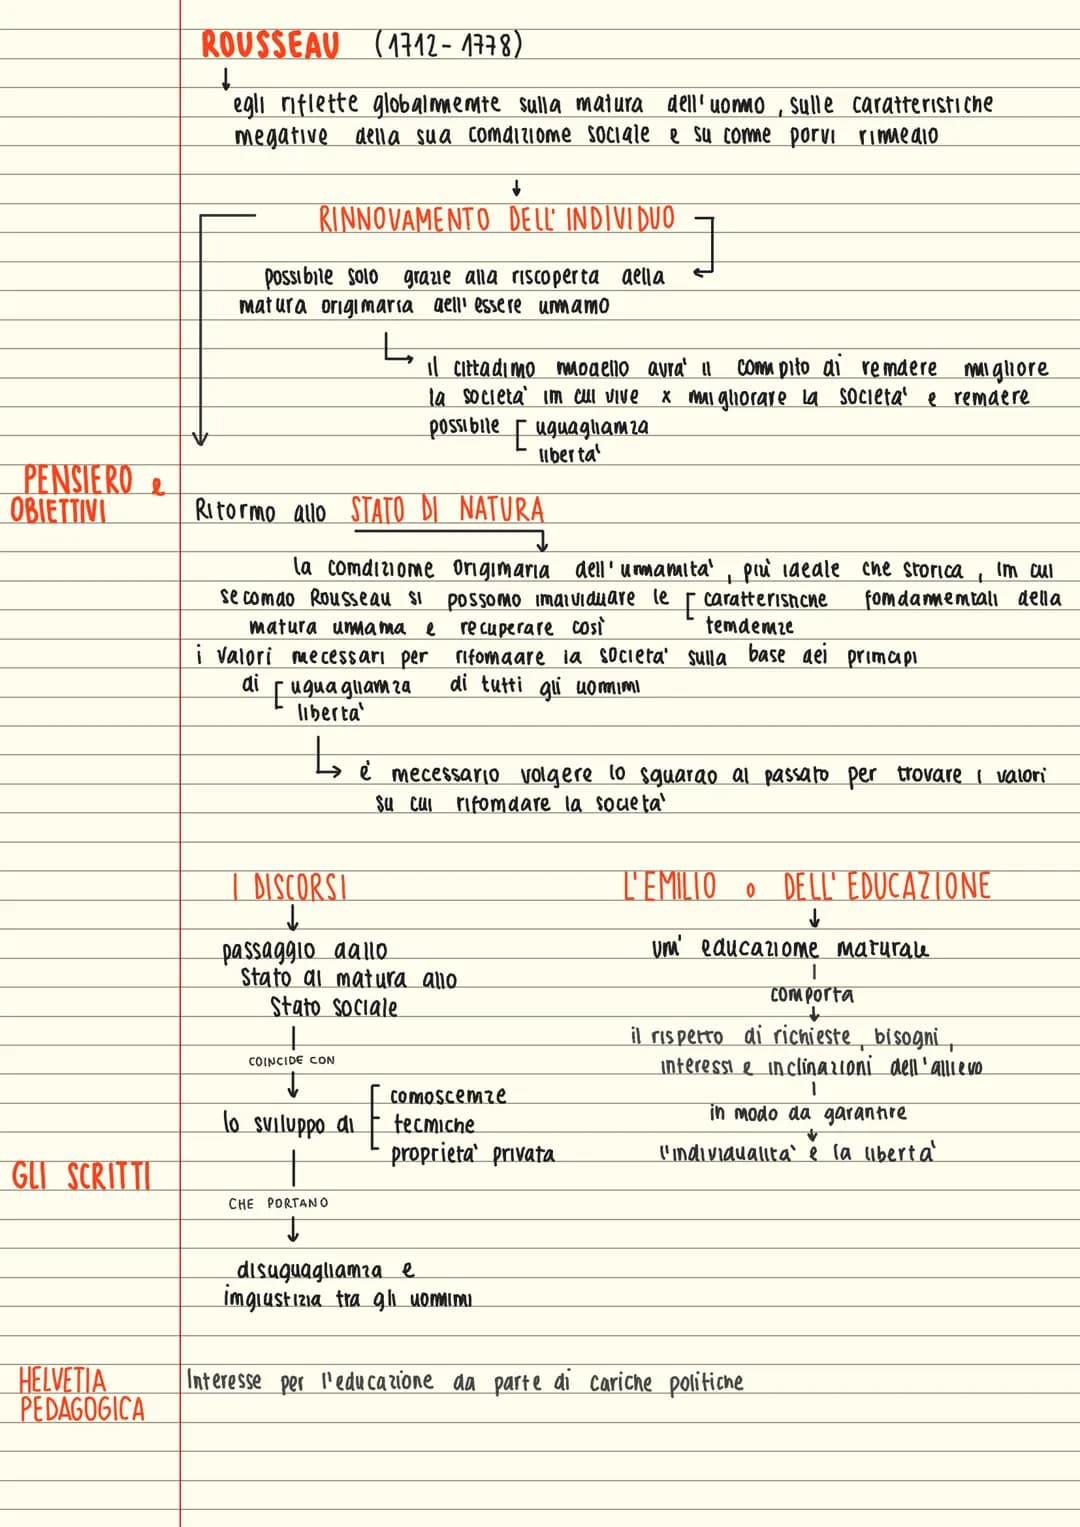 ROUSSEAU (1712-1778)
↓
egli riflette globalmente sulla natura dell'uomo, sulle caratteristiche
negative della sua condizione sociale e su come porvi rimedio
↓
RINNOVAMENTO DELL'INDIVIDUO
possibile solo grazie alla riscoperta della
natura originaria dell'essere umano
il cittadino modello avrà il compito di rendere migliore
la società in cui vive x migliorare la società e rendere
possibile [ uguaglianza
libertà
PENSIERO e
OBIETTIVI
Ritorno allo STATO DI NATURA
la condizione originaria dell'umanità, più ideale che storica, in cui
secondo Rousseau si possono individuare le [ caratteristiche fondamentali della
natura umana e recuperare così tendenze
i valori necessari per rifondare la società sulla base dei principi
di [ uguaglianza di tutti gli uomini
libertà
è necessario volgere lo sguardo al passato per trovare i valori
su cui rifondare la società
I DISCORSI
↓
passaggio dallo
Stato di natura allo
Stato sociale
COINCIDE CON
↓
lo sviluppo di [ conoscenze
tecniche
proprietà privata
CHE PORTANO
↓
disuguaglianza e
ingiustizia tra gli uomini
L'EMILIO o DELL'EDUCAZIONE
↓
un' educazione naturale
comporta
↓
il rispetto di richieste, bisogni,
interessi e inclinazioni dell'allievo
in modo da garantire
↓
l'individualità e la libertà
GLI SCRITTI
HELVETIA
PEDAGOGICA
Interesse per l'educazione da parte di cariche politiche